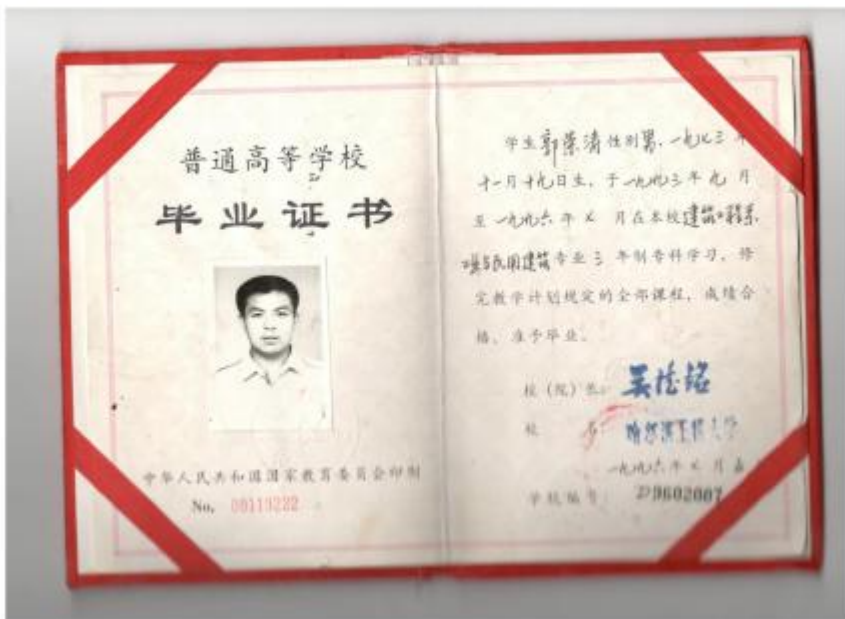 普通高等学校
毕业证书
中华人民共和国国家教育委员会印制
No. 00113222
学生郭荣清性别男，一九七三年
十一月十九日生，于一九九三年九月
至一九九六年七月在本校建筑工程系
工业与民用建筑专业三年制专科学习，修
完教学计划规定的全部课程，成绩合
格，准予毕业。
校（院）长：吴德铭
校 名：哈尔滨工程大学
一九九六年七月
学校编号：9602007